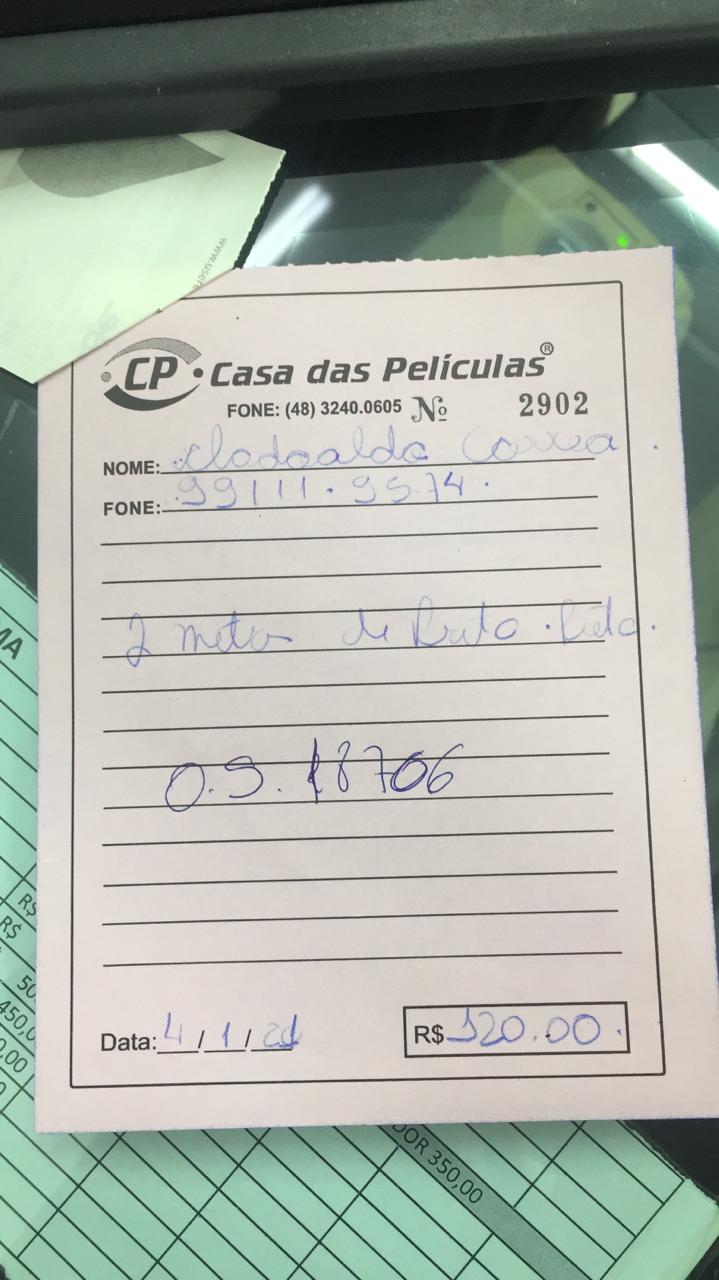 www.user
CP • Casa das Películas®
FONE: (48) 3240.0605 Nº 2902
NOME: Clodoaldo Correa
FONE: 99111.9574.
2 metros de
O.S. 18706
Data: 4/1/21
R$ 120.00
MA
R$
R$
50
450,0
0,00
OOR 350,00